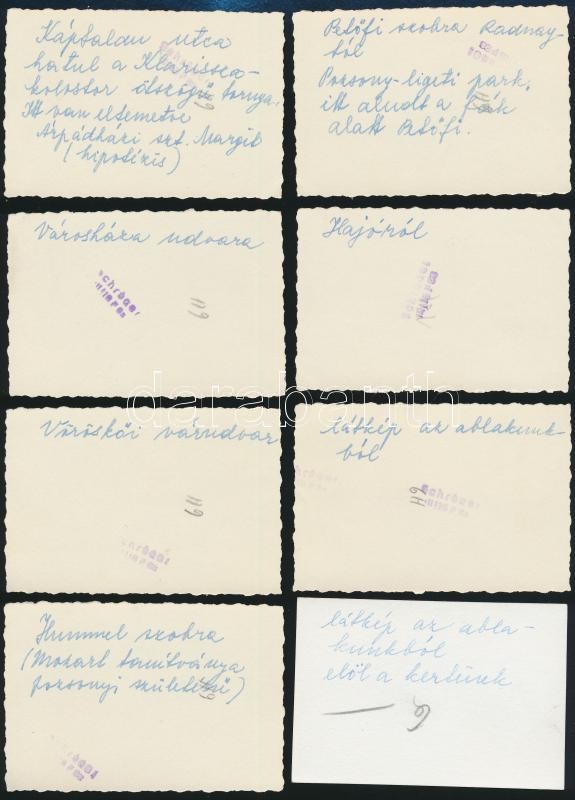 Káptalan utca
hátul a Klarissza-
kolostor ötszögű tornya.
Itt van eltemetve
Árpádházi szt. Margit
(hipotézis)
Petőfi szobra Radnay-
tól
Pozsony-ligeti park,
itt aludt a fák
alatt Petőfi.
Városháza udvara
Schröger
Hajóról
Vöröskői várudvar
látkép az ablakunk-
ból
Schröger
Hummel szobra
(Mozart tanítványa
pozsonyi születésű)
látkép az abla-
kunkból
elöl a kertünk
darabanth